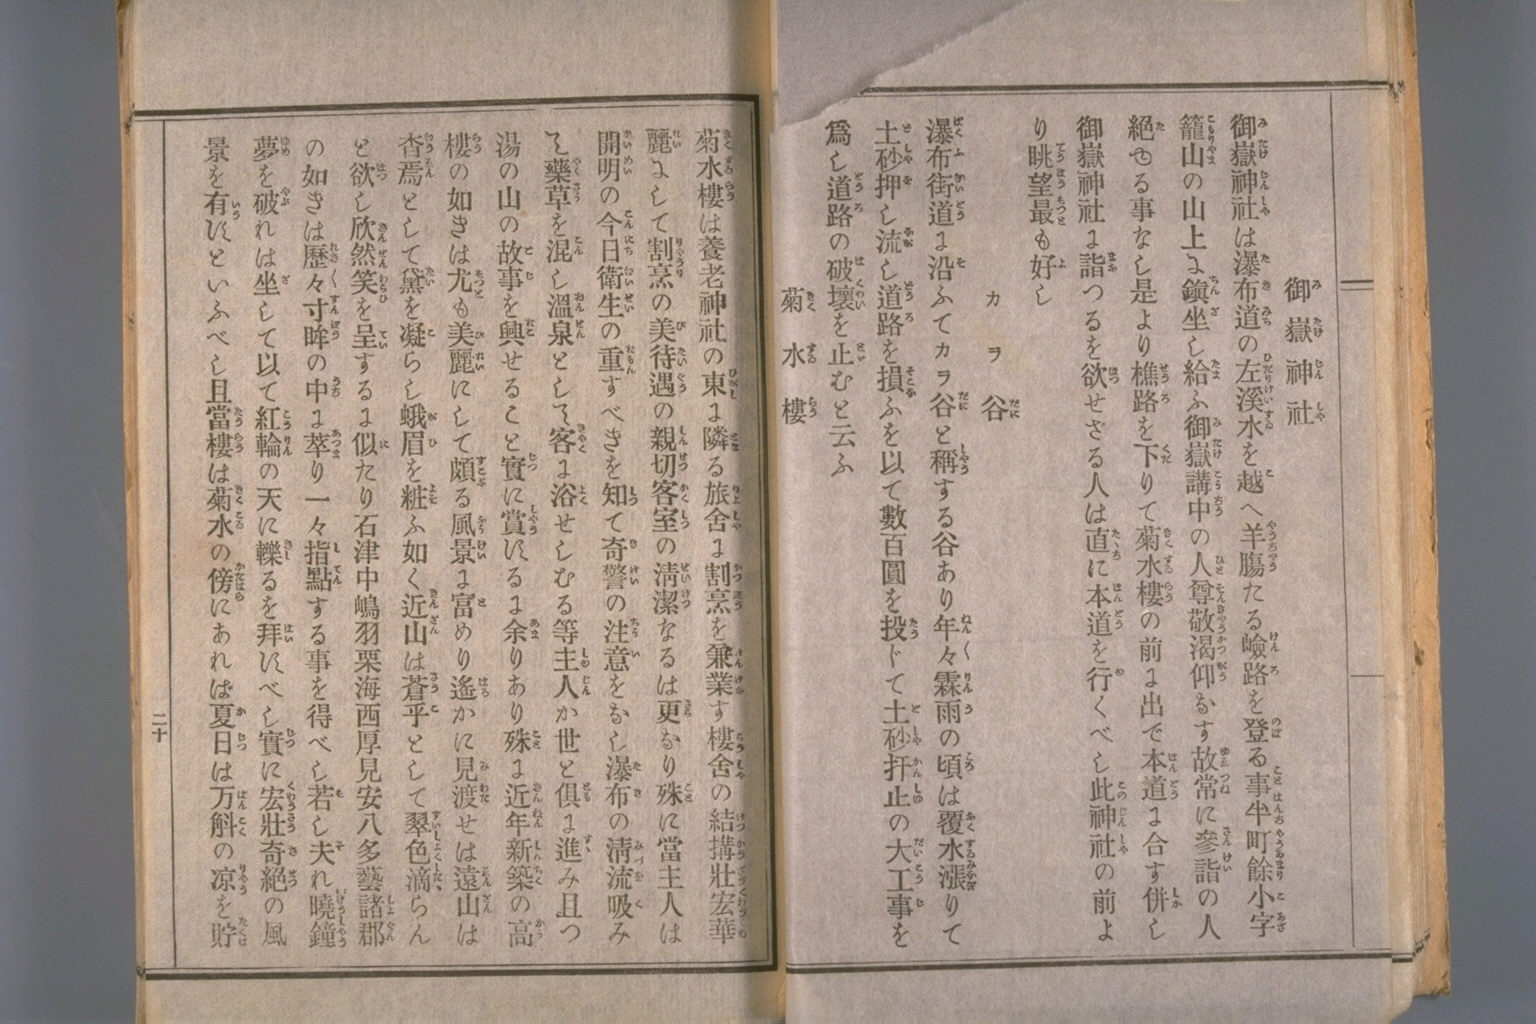 御嶽神社
御嶽神社は瀑布道の左溪水を越へ羊膓たる嶮路を登る事半町餘小字
籠山の山上に鎭坐し給ふ御嶽講中の人尊敬渇仰なす故常に參詣の人
絶ゆる事なし是より樵路を下りて菊水樓の前に出で本道に合す併し
御嶽神社に詣つるを欲せざる人は直に本道を行くべし此神社の前よ
り眺望最も好し
カヲ谷
瀑布街道に沿ふてカヲ谷と稱する谷あり年々霖雨の頃は覆水漲りて
土砂押し流し道路を損ふを以て數百圓を投じて土砂扞止の大工事を
爲し道路の破壞を止むと云ふ
菊水樓
菊水樓は養老神社の東に隣る旅舍に割烹を兼業す樓舍の結搆壯宏華
麗にして割烹の美待遇の親切客室の淸潔なるは更なり殊に當主人は
開明の今日衛生の重すべきを知て奇警の注意をなし瀑布の淸流吸み
て藥草を混し溫泉として客に浴せしむる等主人か世と倶に進み且つ
湯の山の故事を興せること實に賞するに余りあり殊に近年新築の高
樓の如きは尤も美麗にして頗る風景に富めり遙かに見渡せは遠山は
杳焉として黛を凝らし蛾眉を粧ふ如く近山は蒼乎として翠色滴らん
と欲し欣然笑を呈するに似たり石津中嶋羽栗海西厚見安八多藝諸郡
の如きは歷々寸眸の中に萃り一々指點する事を得べし若し夫れ曉鐘
夢を破れは坐して以て紅輪の天に轢るを拜すべし實に宏壯奇絕の風
景を有すといふべし且當樓は菊水の傍にあれば夏日は万斛の凉を貯
二十